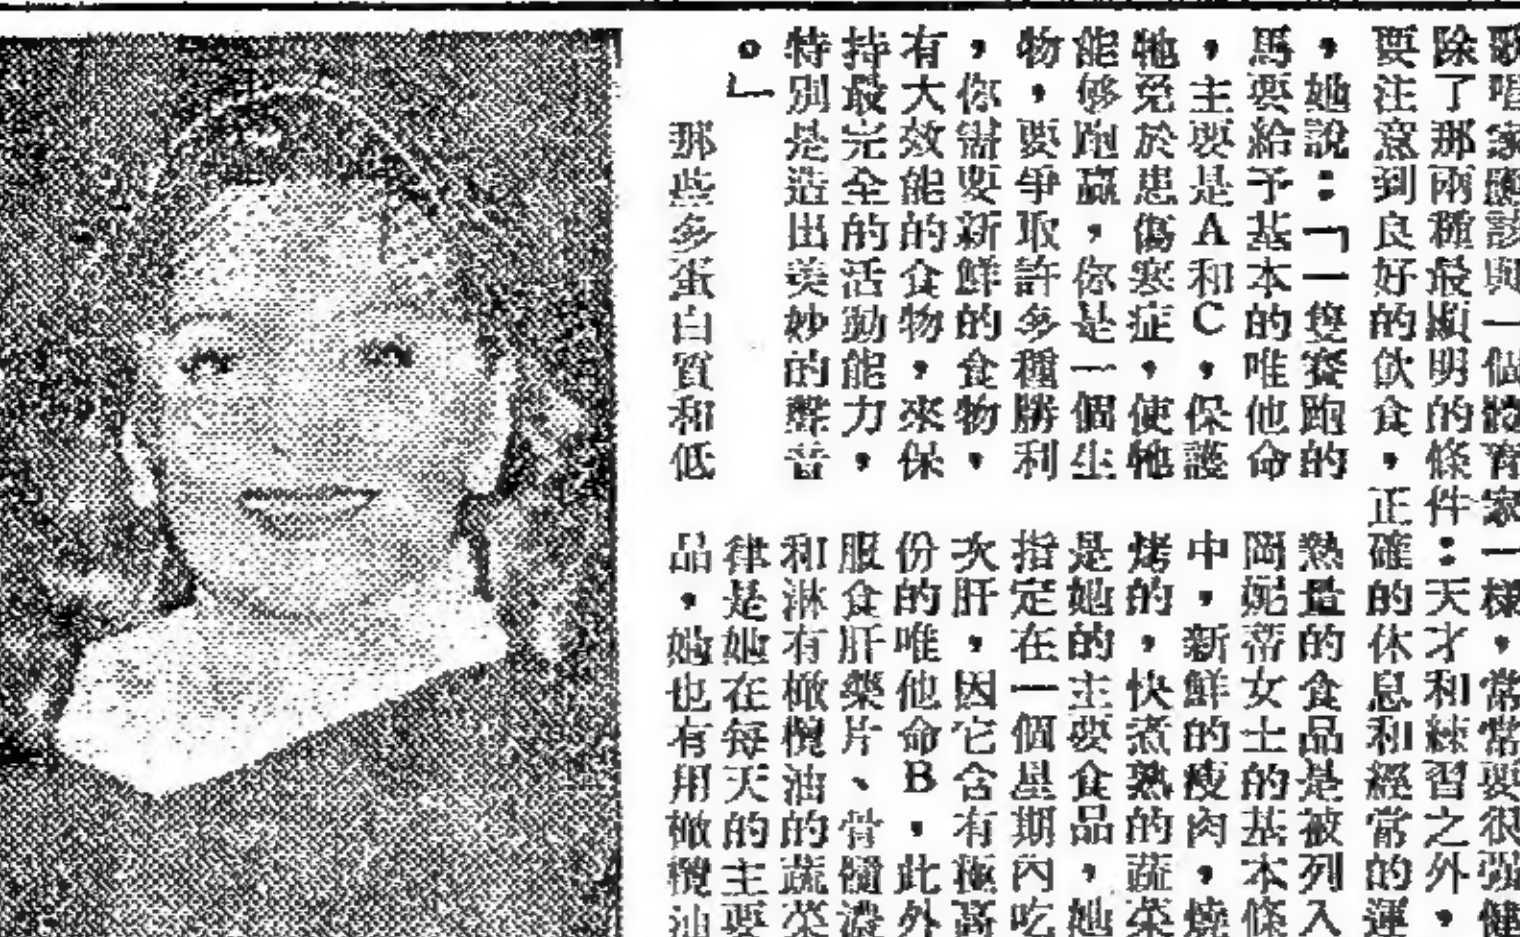 歌唱家應該與一個體育家一樣，常常要很強健
除了那兩種最顯明的條件：天才和練習之外，
要注意到良好的飲食，正確的休息和經常的運
，她說：「一隻賽跑的
馬要給予基本的唯他命
，主要是A和C，保護
牠免於患傷寒症，使牠
能够跑贏，你是一個生
物，要爭取許多種勝利
，你需要新鮮的食物，
有大效能的食物，來保
持最完全的活動能力，
特別是造出美妙的聲音
。」
那些多蛋白質和低
熱量的食品是被列入
岡妮蒂女士的基本條
中，新鮮的瘦肉，燒
烤的，快煮熟的蔬菜
是她的主要食品，她
指定在一個星期內吃
次肝，因它含有極富
份的唯他命B，此外
服食肝藥片、骨髓濃
和淋有橄欖油的蔬菜
律是她在每天的主要
品，她也有用橄欖油